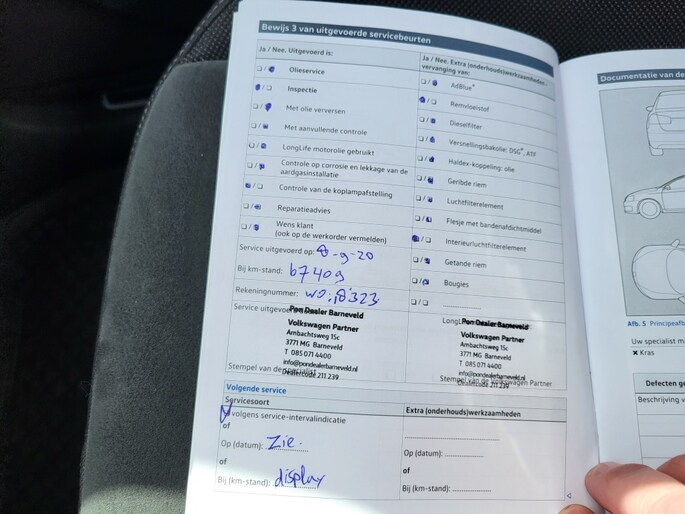 Bewijs 3 van uitgevoerde servicebeurten
Ja / Nee. Uitgevoerd is:
Olieservice
Inspectie
Met olie verversen
Met aanvullende controle
LongLife motorolie gebruikt
Controle op corrosie en lekkage van de
aardgasinstallatie
Controle van de koplampafstelling
Reparatieadvies
Wens klant
(ook op de werkorder vermelden)
Service uitgevoerd op: 8-9-20
Bij km-stand: 67409
Rekeningnummer:
Service uitgevoerd
Pon Dealer Barneveld
Volkswagen Partner
Ambachtsweg 15c
3771 MG Barneveld
T 085 071 4400
info@pondealerbarneveld.nl
Dealercode 211 239
Stempel van de specialist
Ja / Nee. Extra (onderhouds)werkzaamheden -
vervanging van:
AdBlue®
Remvloeistof
Dieselfilter
Versnellingsbakolie: DSG®, ATF
Haldex-koppeling: olie
Geribde riem
Luchtfilterelement
Flesje met bandenafdichtmiddel
Interieurluchtfilterelement
Getande riem
Bougies
Pon Dealer Barneveld
Volkswagen Partner
Ambachtsweg 15c
3771 MG Barneveld
T 085 071 4400
info@pondealerbarneveld.nl
Dealercode 211 239
Stempel van de Volkswagen Partner
Volgende service
Servicesoort
volgens service-intervalindicatie
of
Op (datum): Zie
of
Bij (km-stand): display
Extra (onderhouds)werkzaamheden
Op (datum):
of
Bij (km-stand):
Documentatie van de
Afb. 5 Principeafb
Uw specialist ma
× Kras
Defecten ge
Beschrijving v